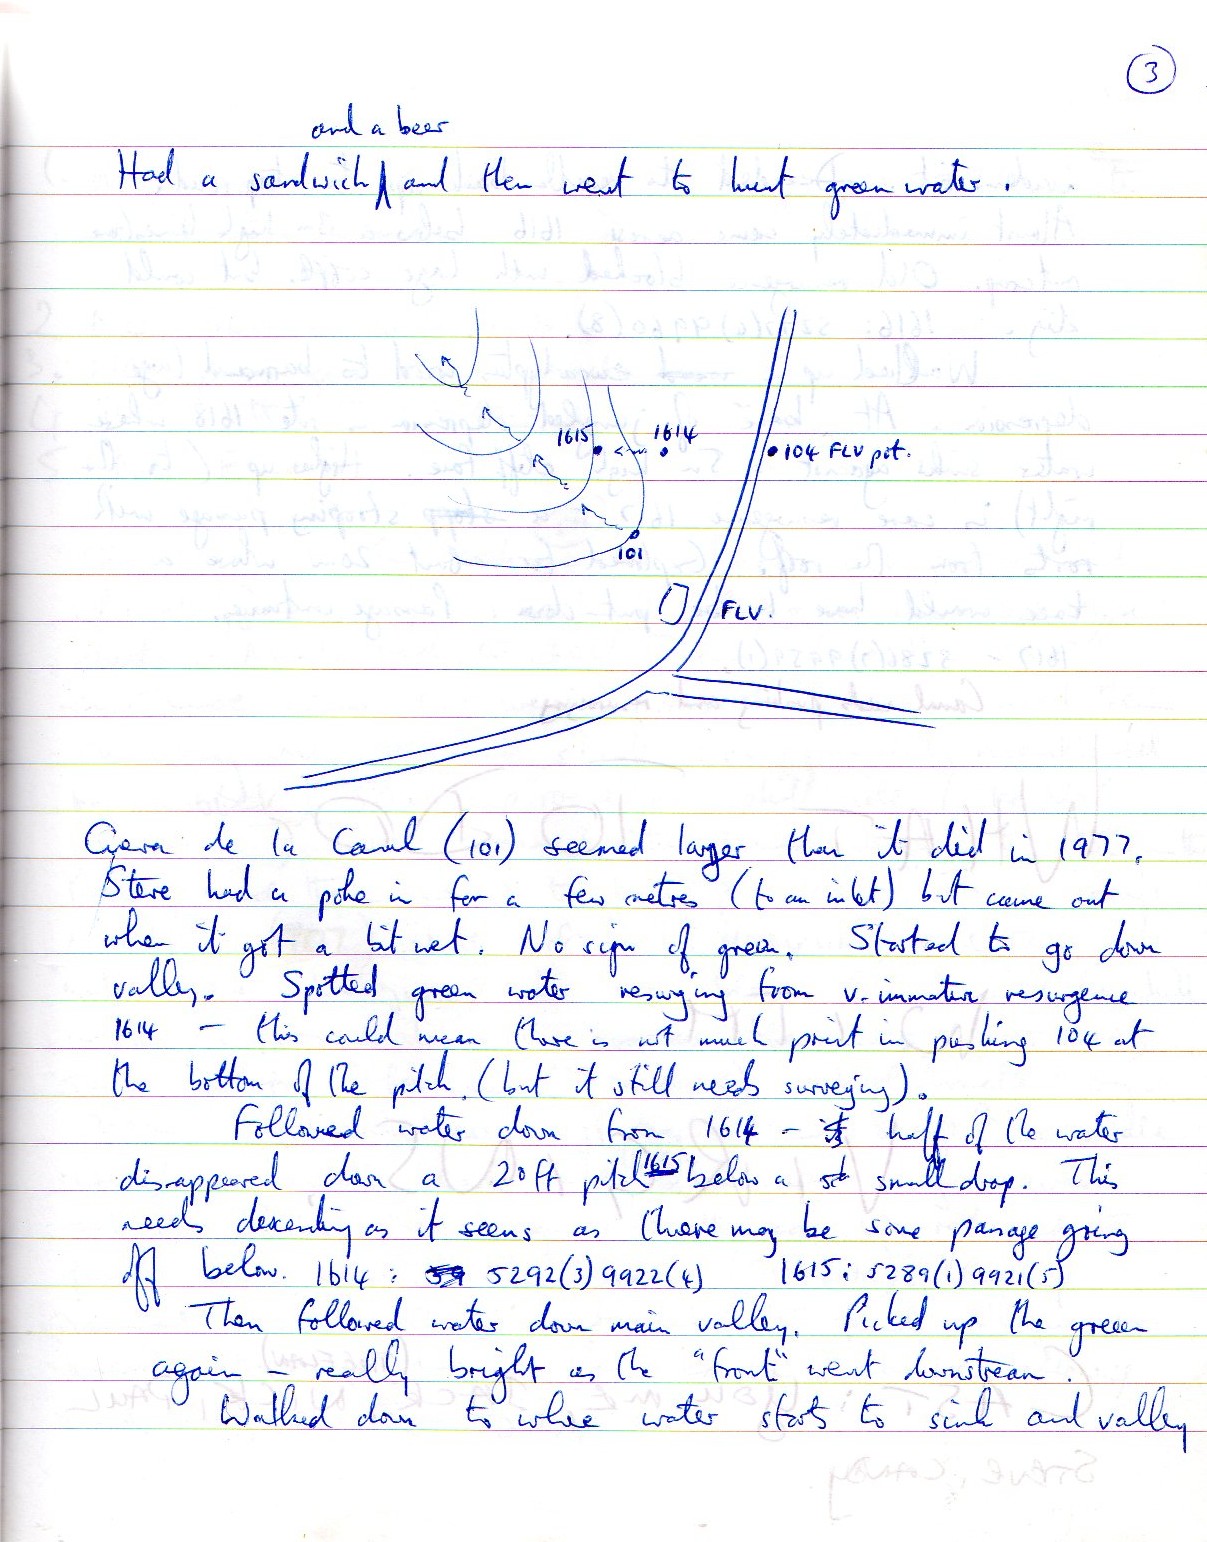 3
and a beer
Had a sandwich and then went to hunt green water.
1615
1614
104 FLV pot.
101
FLV.
Cueva de la Canal (101) seemed larger than it did in 1977.
Steve had a poke in for a few metres (to an inlet) but came out
when it got a bit wet. No sign of green. Started to go down
valley. Spotted green water resurging from v. immature resurgence
1614 – this could mean there is not much point in pushing 104 at
the bottom of the pitch. (but it still needs surveying).
Followed water down from 1614 – half of the water
disappeared down a 20ft pitch 1615 below a small drop. This
needs descending as it seems as there may be some passage going
off below. 1614 : 5292(3) 9922(4) 1615: 5289(1) 9921(5)
Then followed water down main valley. Picked up the green
again – really bright as the "front" went downstream.
Walked down to where water starts to sink and valley